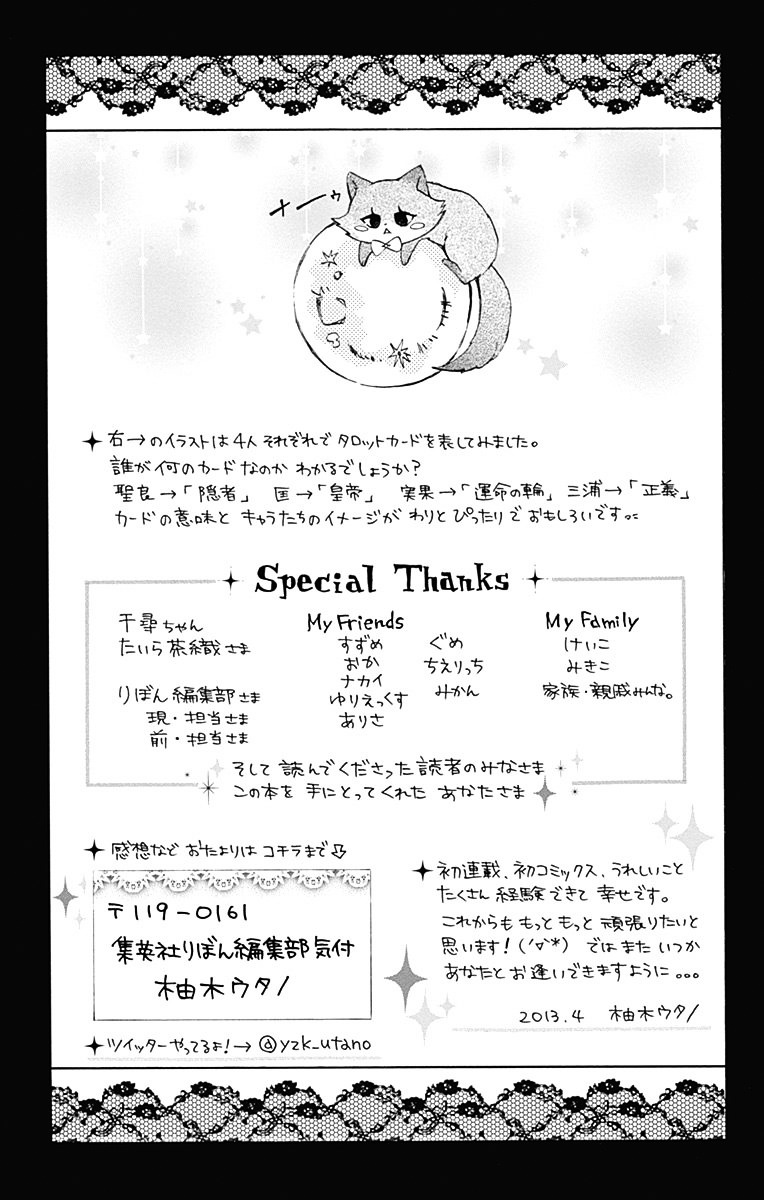 ナーゥ
右→のイラストは4人それぞれでタロットカードを表してみました。
誰が何のカードなのかわかるでしょうか？
聖良→「隠者」 匡→「皇帝」 実果→「運命の輪」 三浦→「正義」
カードの意味とキャラたちのイメージがわりとぴったりでおもしろいです。
Special Thanks
千尋ちゃん
たいら茶織さま
りぼん編集部さま
現・担当さま
前・担当さま
My Friends
すずめ
おか
ナカイ
ゆりえっくす
ありさ
ぐめ
ちえりっち
みかん
My Family
けいこ
みきこ
家族・親戚みんな。
そして 読んでくださった読者のみなさま
この本を 手にとってくれた あなたさま
感想など おたよりは コチラまで⇩
〒119-0161
集英社りぼん編集部気付
柚木ウタノ
ツイッターやってるよ!→ @yzk_utano
初連載、初コミックス、うれしいこと
たくさん経験できて 幸せです。
これからも もっと もっと 頑張りたいと
思います! (´∇`*) ではまた いつか
あなたとお逢いできますように...
2013.4 柚木ウタノ